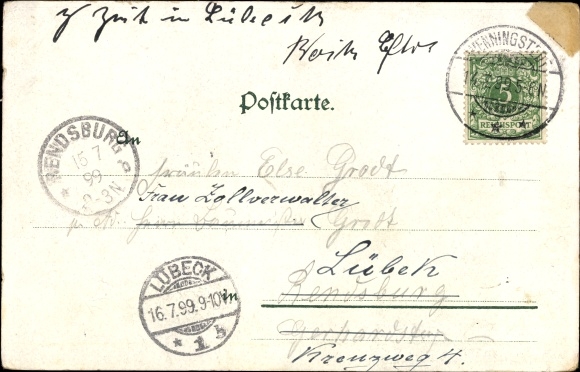 z. Zeit in Lübeck
Postkarte.
WENNINGSTEDT
5
REICHSPOST
RENDSBURG
15 7
99
2-3N.
An
Fräulein Else Grodt
Frau Zollverwalter
Herrn Grodt
LÜBECK
16.7.99.9-10V.
* 1 b
in
Lübek
Rendsburg
Gerhardstr
Kreuzweg 4.